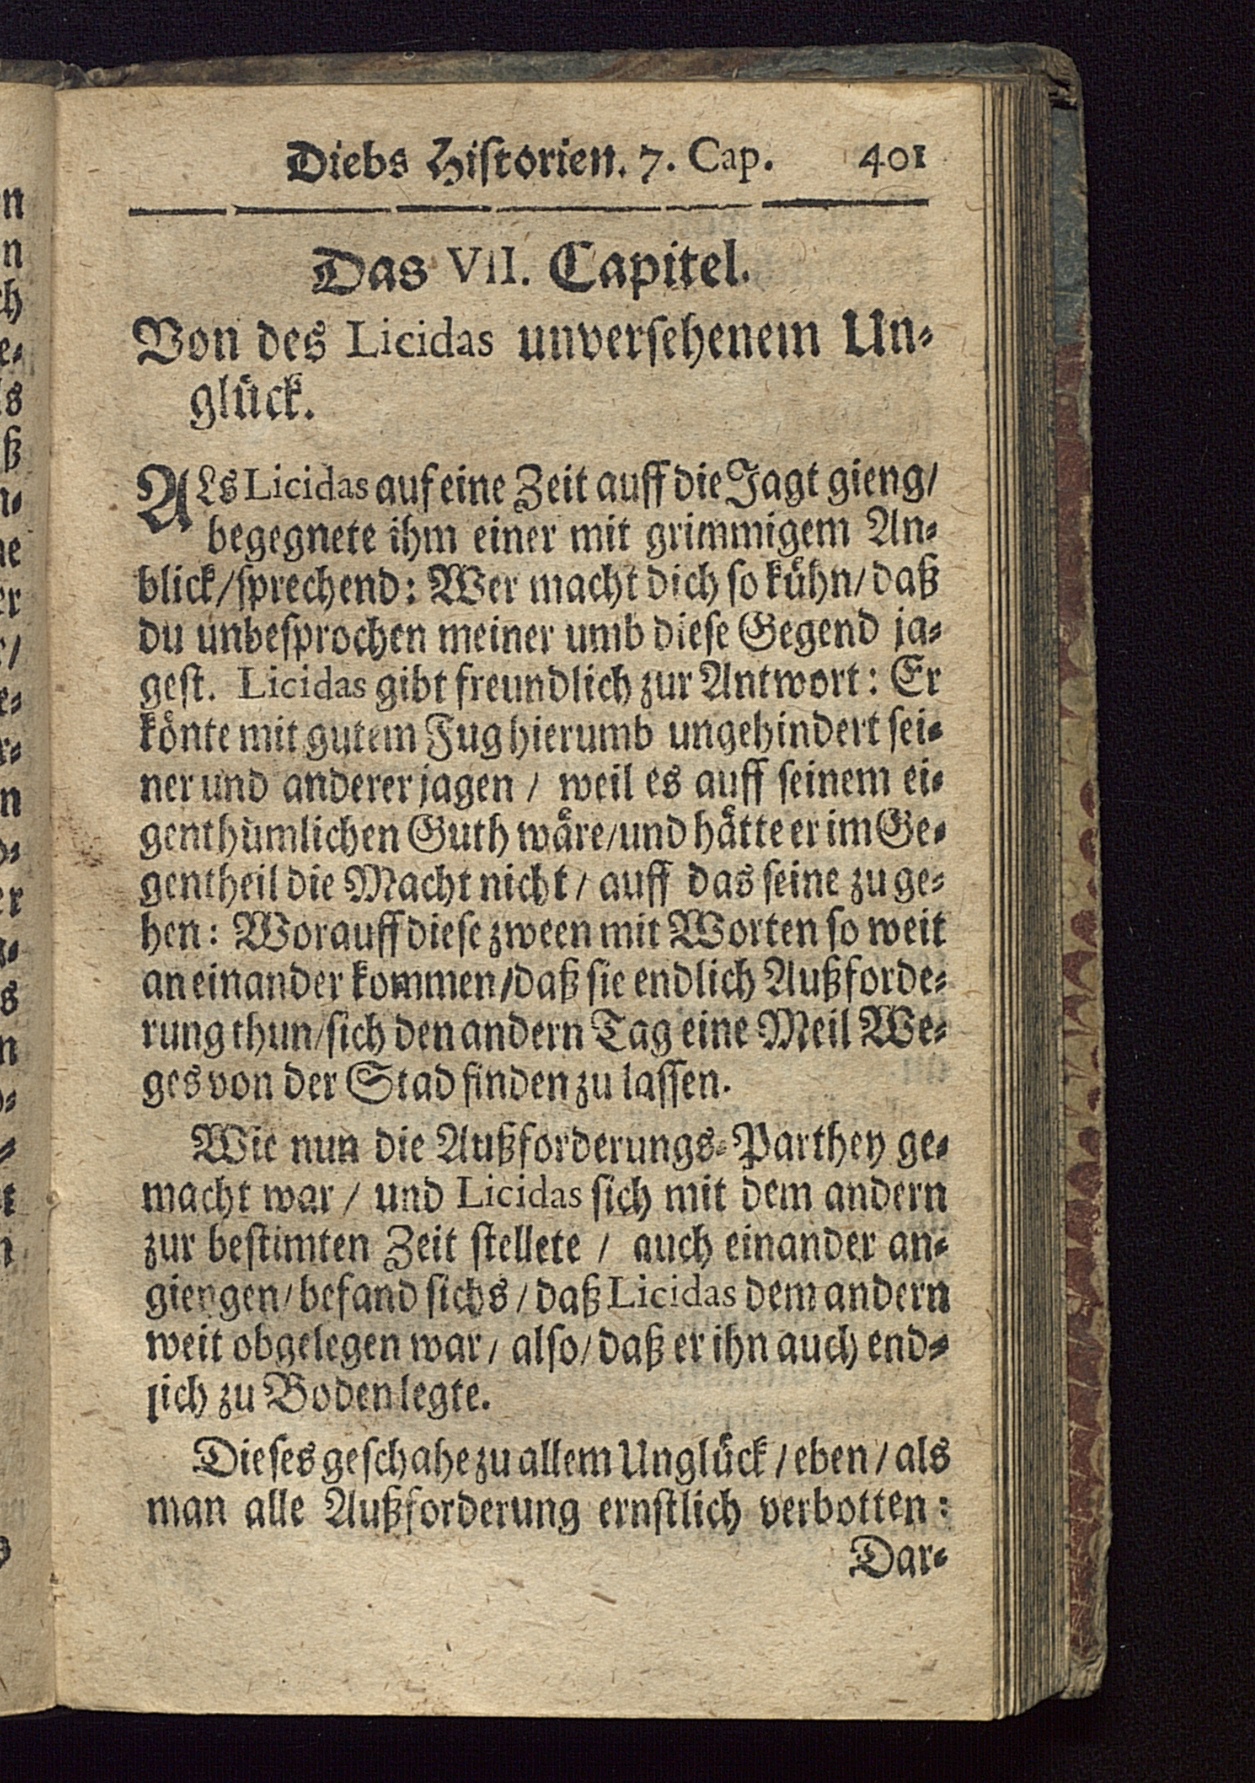 Diebs Historien. 7. Cap. 401
Das VII. Capitel.
Von des Licidas unversehenem Un-
glück.
ALs Licidas auf eine Zeit auff die Jagt gieng/
begegnete ihm einer mit grimmigem An-
blick/sprechend: Wer macht dich so kühn/daß
du unbesprochen meiner umb diese Gegend ja-
gest. Licidas gibt freundlich zur Antwort: Er
könte mit gutem Fug hierumb ungehindert sei-
ner und anderer jagen / weil es auff seinem ei-
genthümlichen Guth wäre/und hätte er im Ge-
gentheil die Macht nicht / auff das seine zu ge-
hen: Worauff diese zween mit Worten so weit
an einander kommen/daß sie endlich Außforde-
rung thun/sich den andern Tag eine Meil We-
ges von der Stad finden zu lassen.
Wie nun die Außforderungs-Parthey ge-
macht war / und Licidas sich mit dem andern
zur bestimten Zeit stellete / auch einander an-
giengen/befand sichs/daß Licidas dem andern
weit obgelegen war/ also/daß er ihn auch end-
lich zu Boden legte.
Dieses geschahe zu allem Unglück/eben/als
man alle Außforderung ernstlich verbotten:
Dar-